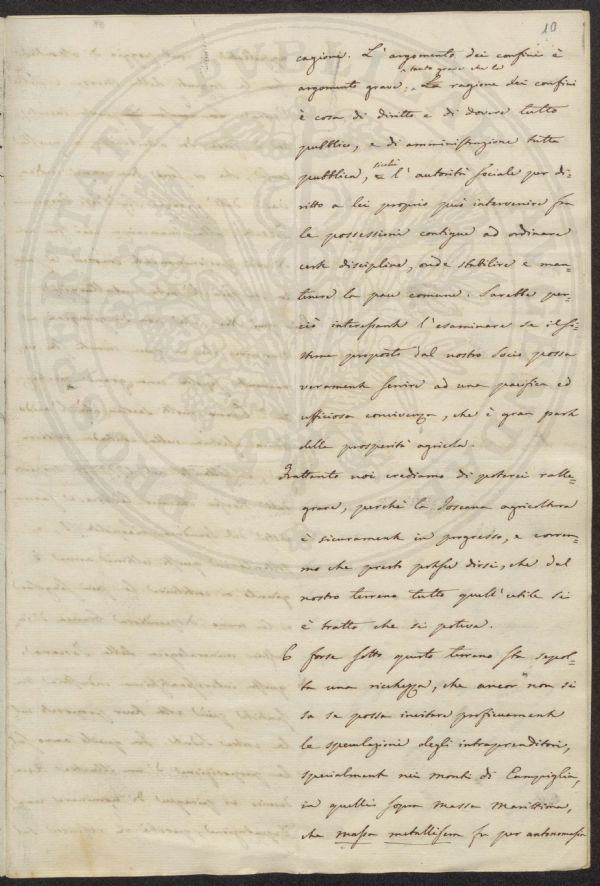 10
cagione. L'argomento dei confini è
tanto grave che la
argomento grave. La ragione dei confini
è cosa di diritto e di dovere tutto
pubblico, e di amministrazione tutta
pubblica, sicché l'autorità sociale per di-
ritto a lei proprio può intervenire fra
le possessioni contigue ad ordinare
certe discipline, onde stabilire e man-
tenere la pace comune. Sarebbe per-
ciò interessante l'esaminare se il si-
stema proposto dal nostro Socio possa
veramente servire ad una pacifica ed
ufficiosa convivenza, che è gran parte
della prosperità agricola.
Frattanto noi crediamo di poterci ralle-
grare, perché la Toscana agricoltura
è sicuramente in progresso, e
mo che presto potesse dirsi, che dal
nostro terreno tutto quell'utile si
è tratto che si poteva.
6 Forse sotto questo terreno sta sepol-
ta una ricchezza, che ancor non si
sa se possa invitare proficuamente
le speculazioni degli intraprenditori,
specialmente nei monti di Campiglia,
in quelli sopra Massa Marittima,
che massa metallifera fu per antonomasia